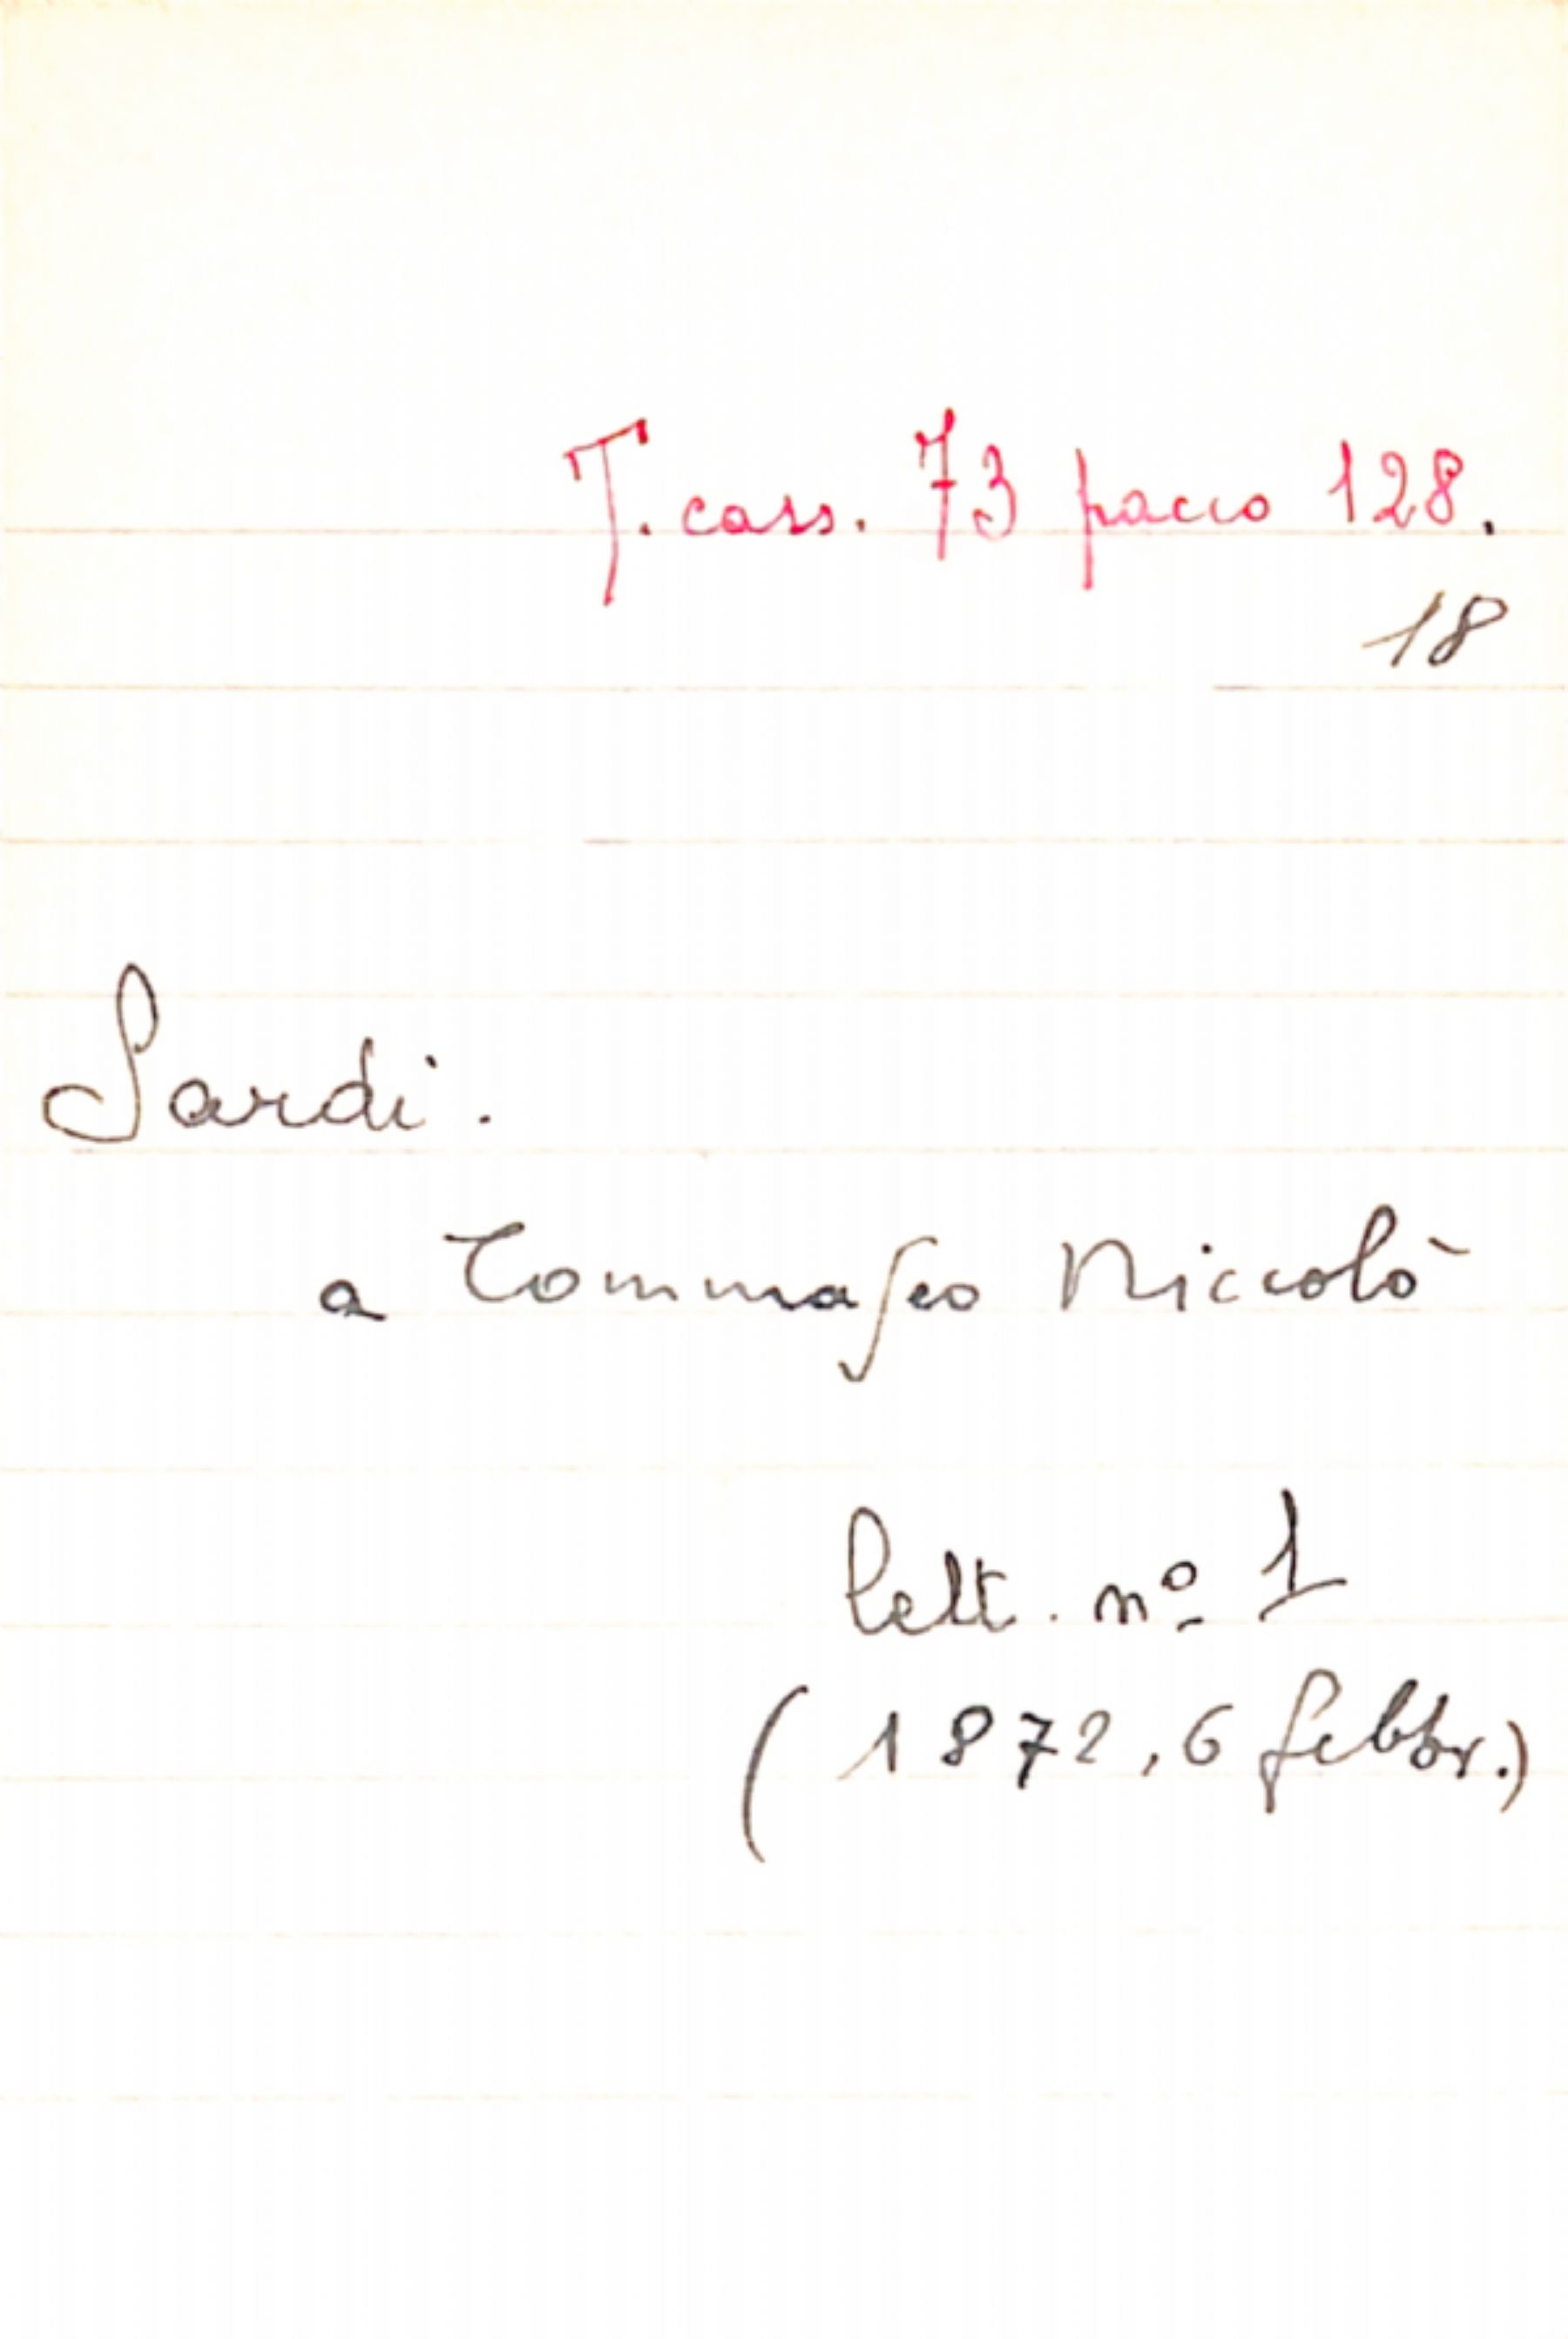 T. cass. 73 pacco 128.
18
Sardi.
a Tommaseo Niccolò
lett. nº 1
(1872, 6 febbr.)